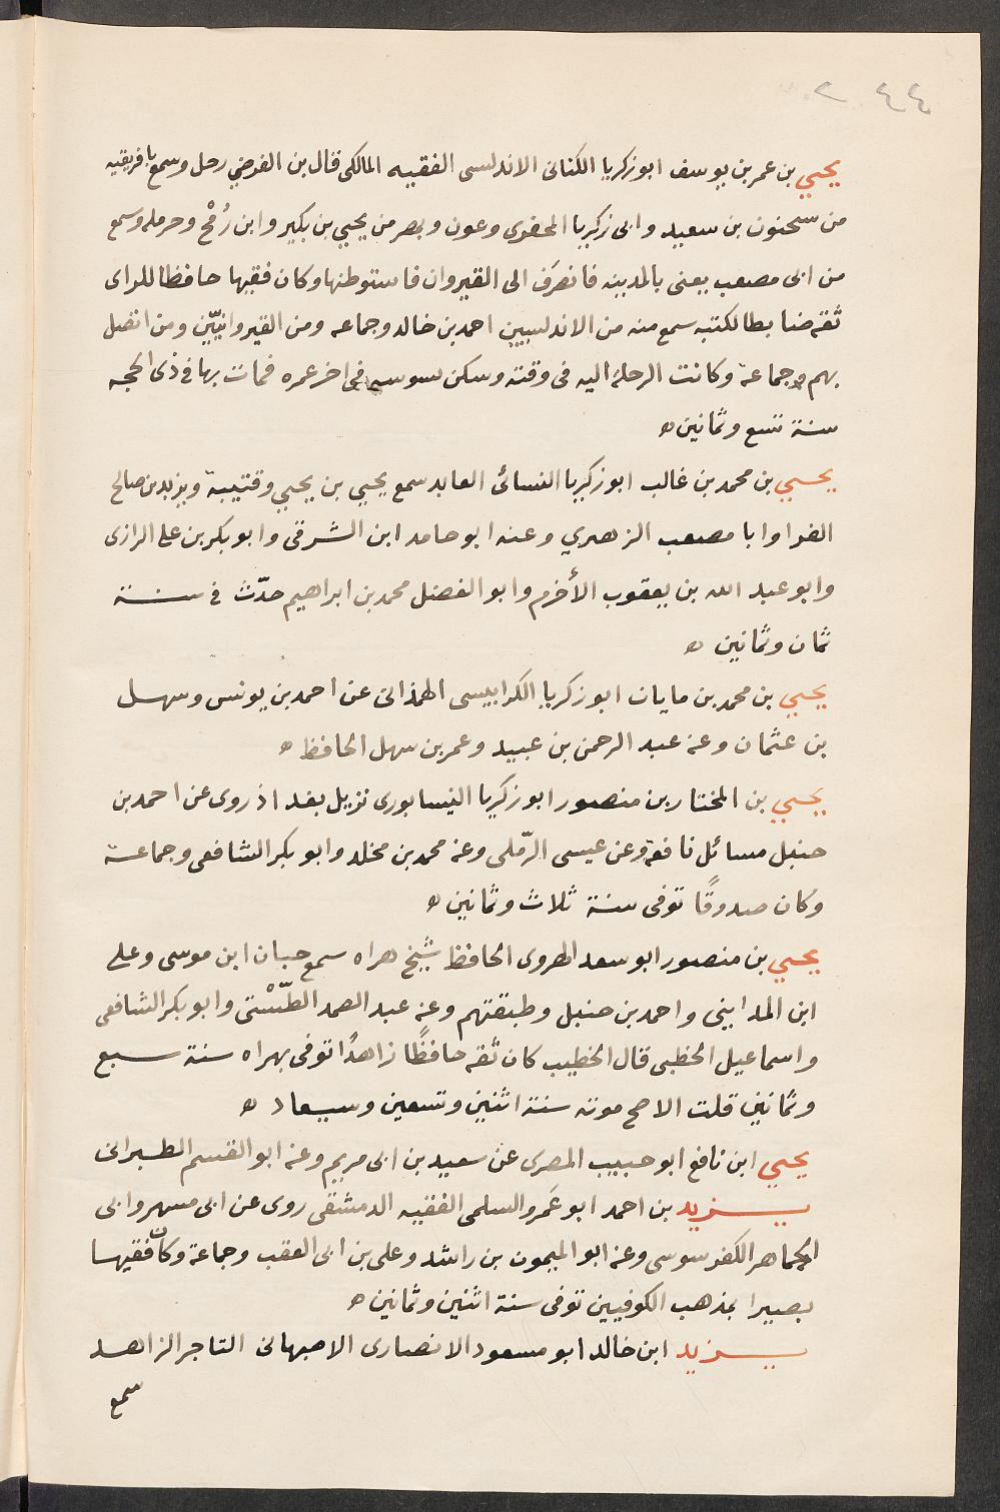 ٢٤٤
يحيي بن عمر بن يوسف ابو زكريا الكنانى الاندلسى الفقيه المالكى قال بن الفرضي رحل وسمع بافريقيه
من سحنون بن سعيد وابى زكريا الحفرى وعون وبمصر من يحيي بن بكير وابن رُمْح وحرمله وسمع
من ابى مصعب يعنى بالمدينه فانصَرَف الى القيروان فاستوطنها وكان فقيها حافظا للراى
ثقه ضابطا لكتبه سمع منه من الاندلسيين احمد بن خالد وجماعه ومن القيروانيّين ومن اتصل
بهم وجماعة وكانت الرحلة اليه فى وقته وسكن سوسه فى اخر عمره فمات بها في ذى الحجه
سنة تسع وثمانين ه
يحيي بن محمد بن غالب ابو زكريا النسائى العابد سمع يحيي بن يحيي وقتيبة ويزيد بن صالح
الفرا وابا مصعب الزهري وعنه ابو حامد ابن الشرقى وابو بكر بن على الرازى
وابو عبد الله بن يعقوب الأخرم وابو الفضل محمد بن ابراهيم حدّث في سنة
ثمان وثمانين ه
يحيي بن محمد بن مايان ابو زكريا الكرابيسى الهمذانى عن احمد بن يونس وسهل
بن عثمان وعنه عبد الرحمن بن عبيد وعمر بن سهل الحافظ ه
يحيي بن المختار بن منصور ابو زكريا النيسابورى نزيل بغداذ روى عن احمد بن
حنبل مسائل نافعة وعن عيسى الرّملى وعنه محمد بن مخلد وابو بكر الشافعى وجماعة
وكان صدوقًا توفى سنة ثلاث وثمانين ه
يحيي بن منصور ابو سعد الهروى الحافظ شيخ هراه سمع حبان ابن موسى وعلى
ابن المدايينى واحمد بن حنبل وطبقتهم وعنه عبد الصمد الطّسْتى وابو بكر الشافعى
واسماعيل الخطبى قال الخطيب كان ثقه حافظًا زاهدًا توفى بهراه سنة سبع
وثمانين قلت الاصح موته سنة اثنين وتسعين وسيعاد ه
يحيي ابن نافع ابو حبيب المصرى عن سعيد بن ابى مريم وعنه ابو القسم الطبرانى
يزيد بن احمد ابو عَمرو السلمى الفقيه الدمشقى روى عن ابى مسهر وابى
الجماهر الكفرسوسى وعنه ابو الميمون بن راشد وعلى بن ابى العقب وجماعة وكان فقيها
بصيرا بمذهب الكوفيين توفى سنة اثنين وثمانين ه
يزيد ابن خالد ابو مسعود الانصارى الاصبهانى التاجر الزاهد
سمع